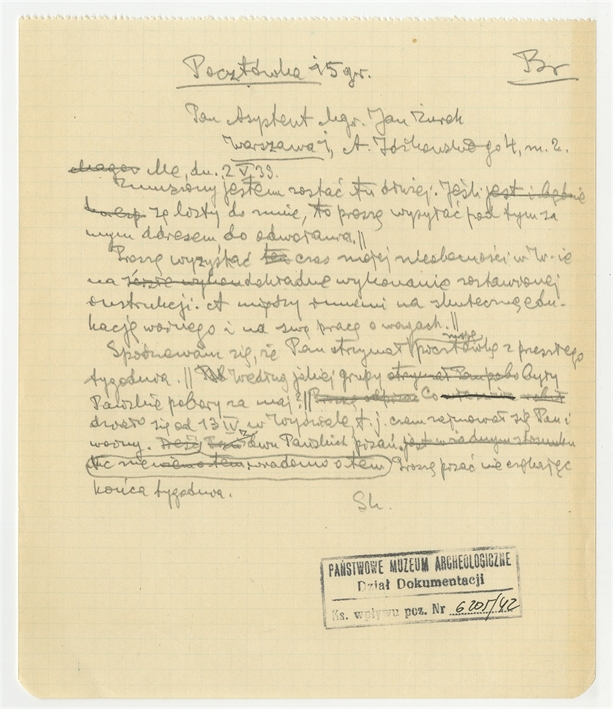 Pocztówka 15 gr.
Br
Pan Asystent Mgr. Jan Żurek
Warszawa 1, A. Idźkowskiego 4, m. 2.
Me, dn. 2 V 39.
Zmuszony jestem zostać tu dłużej. Jeśli jest i będzie
są listy do mnie, to proszę wysyłać pod tym sa-
mym adresem do odwołania. ||
Proszę wyzyskać czas mojej nieobecności w W-ie
na dokładne wykonanie zostawionej
instrukcji. A między innemi na skuteczną edu-
kację woźnego i na swą pracę o wagach. ||
Spodziewam się, że Pan otrzymał moją pocztówkę z przeszłego
tygodnia. || Według jakiej grupy otrzymał Pan były
Pańskie pobory za maj? || Co
działo się od 13 IV w Wydziale t. j. czem zajmował się Pan i
woźny. Pańskich pisań
wiadomo o tem Proszę pisać nie czekając
końca tygodnia.
Sk.
PAŃSTWOWE MUZEUM ARCHEOLOGICZNE
Dział Dokumentacji
Ks. wpływu poz. Nr 6205/42